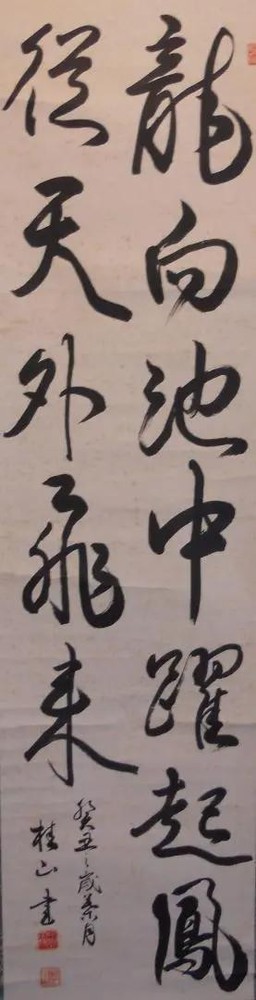 龍向池中躍起鳳
從天外飛来
癸丑之歳 月
桂山書